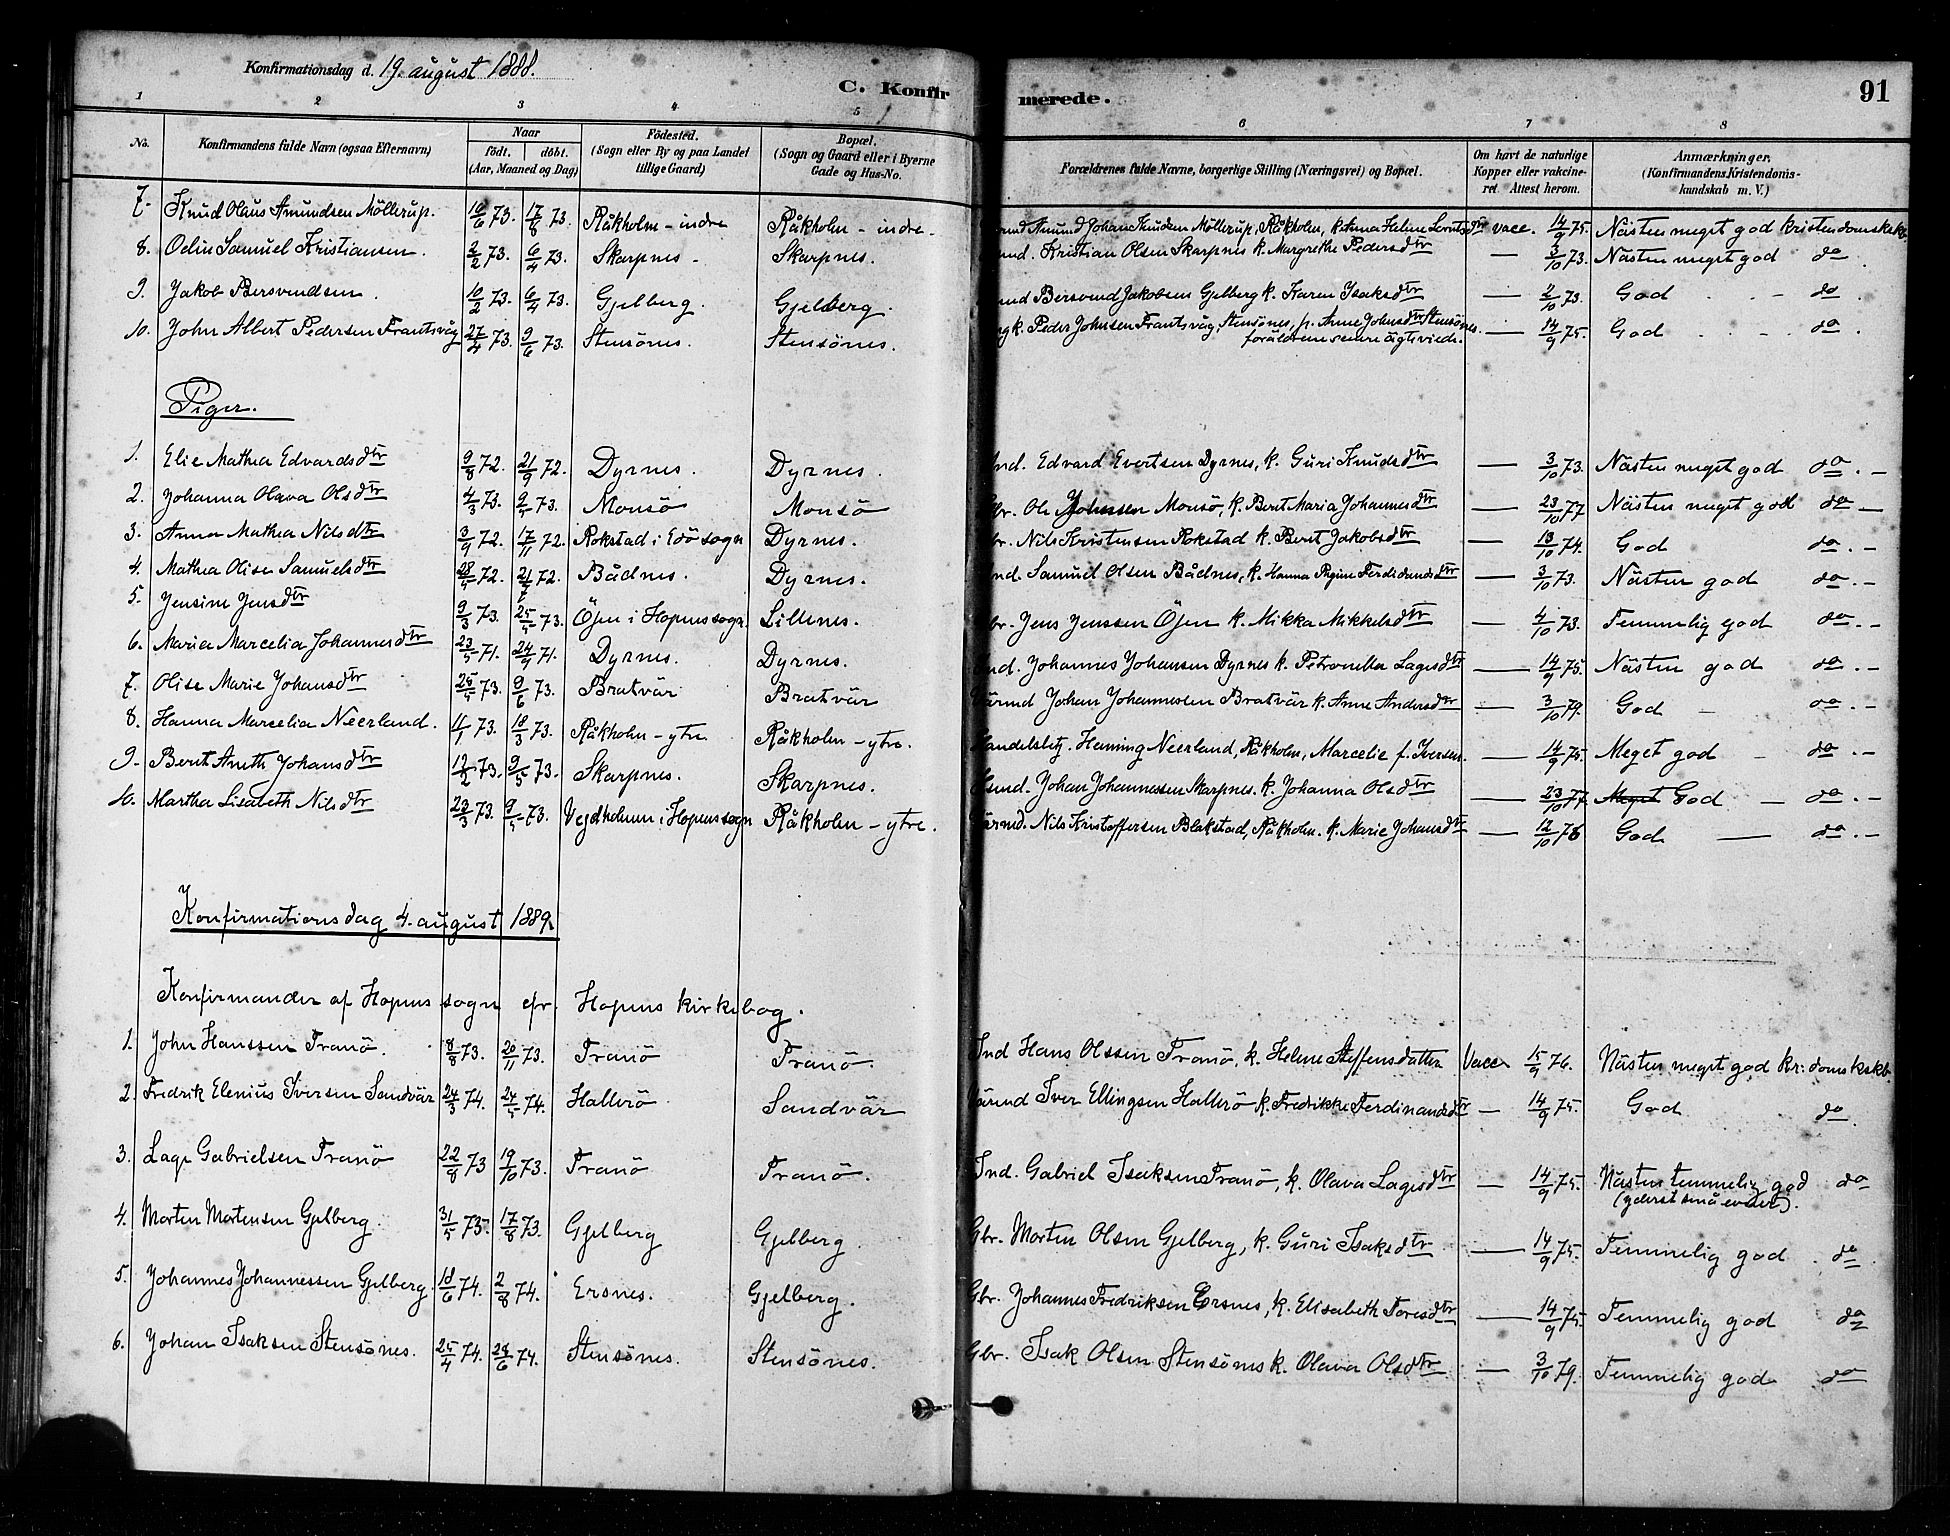 Konfirmationsdag d. 19. august 1888.
C. Konfirmerede.
91
1 2 3 4 5 6 7 8
No. Konfirmandens fulde Navn (ogsaa Efternavn) Naar födt. döbt. (Aar, Maaned og Dag) Födested. (Sogn eller By og paa Landet tillige Gaard) Bopæl. (Sogn og Gaard eller i Byerne Gade og Hus-No. Forældrenes fulde Navne, borgerlige Stilling (Næringsvei) og Bopæl. Om havt de naturlige Kopper eller vakcineret. Attest herom. Anmærkninger. (Konfirmandens Kristendomskundskab m. V.)
7. Knud Olaus Amundsen Möllerup. 10/6 73. 17/8 73. Råkholm - indre Råkholm - indre. Amund Johan Knudsen Möllerup, Råkholm, k. Anna Helene Lorntsdtr vacc. 14/9 75. Nästen meget god kristendomskskb.
8. Odin Samuel Kristiansen. 2/2 73. 6/4 73. Skarpnes. Skarpnes. Kristian Olsen Skarpnes k. Margrethe Pedersdtr — 3/10 73. Nästen meget god do
9. Jakob Bersvendsen. 10/2 73. 6/4 73. Gjelberg. Gjelberg. Bersvend Jakobsen Gjelberg k. Karen Isaksdtr — 2/10 73. God do
10. John Albert Pedersen Frantsvåg 27/4 73. 9/6 73. Stensönes. Stensönes. Peder Johnsen Frantsvåg, Stensönes, p. Anne Johnsdtr Stensönes. — 14/9 75. God do.
foräldrene senere ägteviede.
Piger.
1. Elie Mathea Edvardsdtr 9/8 72. 21/9 72. Dyrnes. Dyrnes. Ind. Edvard Evertsen Dyrnes, k. Guri Knudsdtr — 3/10 73. Nästen meget god do. —
2. Johanna Olava Olsdtr 4/3 73. 9/5 73. Monsö Monsö Gbr. Ole Johnsen Monsö, k. Berit Maria Johannesdtr — 23/10 77 Nästen meget god do —
3. Anna Mathea Nilsdtr 3/9 72. 17/11 72. Rokstad i Edö sogn Dyrnes. Gbr. Nils Kristensen Rokstad k. Berit Jakobsdtr — 13/10 74. God do. —
4. Mathea Olise Samuelsdtr 28/5 72. 21/7 72. Bådnes. Dyrnes. Ind. Samuel Olsen Bådnes, k. Hanna Regine Ferdinandsdtr — 3/10 73. Nästen god do. —
5. Jensine Jensdtr 9/3 73. 25/5 73. Öjen i Hopens sogn. Lillenes. Gbr. Jens Jenssen Öjen k. Mikka Mikkelsdtr — 4/10 73. Temmelig god do. —
6. Maria Marcelia Johannesdtr 23/5 71. 24/9 71. Dyrnes. Dyrnes. Ind. Johannes Johansen Dyrnes k. Petronella Lagesdtr — 14/9 75. Nästen god do. —
7. Olise Marie Johansdtr 25/5 73. 9/6 73. Bratvär Bratvär Gårmd Johan Johannesen Bratvär k. Anne Andersdtr — 3/10 79. God — do. —
8. Hanna Marcelia Neerland. 11/1 73. 18/3 73. Råkholm - ytre Råkholm - ytre. Handelsbetj. Henning Neerland, Råkholm, Marcelie f. Iversen. — 14/9 75. Meget god — do. —
9. Berit Aneth Johansdtr 12/2 73. 9/5 73. Skarpnes. Skarpnes. Johan Johannessen Skarpnes. k. Johanna Olsdtr — 23/10 77. Meget God — do. —
10. Martha Lisabeth Nilsdtr 23/3 73. 9/5 73. Vejdholmen i Hopens sogn Råkholm - ytre. Gårmd. Nils Kristoffersen Blakstad, Råkholm. k. Marie Johansdtr — 12/10 76 God — do. —
Konfirmationsdag 4. august 1889.
Konfirmander af Hopens sogn cfr. Hopens kirkebog.
1. John Hanssen Tranö. 8/8 73. 20/11 73. Tranö Tranö. Ind Hans Olssen Tranö, k. Helene Steffensdatter Vacc 15/9 76. Nästen meget god kr: doms kskb.
2. Fredrik Elenius Iversen Sandvär 24/3 74. 24/5 74. Hallerö Sandvär Gårmd Iver Ellingsen Hallerö k. Fredrikke Ferdinandsdtr — 14/9 75. God do
3. Lage Gabrielsen Tranö 22/8 73 19/10 73. Tranö Tranö. Ind. Gabriel Isaksen Tranö, k. Olava Lagesdtr — 14/9 75. Nästen temmelig god do
(yderst små evner).
4. Morten Mortensen Gjelberg. 31/5 73. 17/8 73. Gjelberg Gjelberg. Gbr. Morten Olsen Gjelberg, k. Guri Isaksdtr — 14/9 75. Temmelig god. do
5. Johannes Johannessen Gjelberg. 18/6 74. 2/8 74. Ersnes. Gjelberg. Gbr. Johannes Fredriksen Ersnes, k. Elisabeth Toresdtr — 14/9 75. Temmelig god do
6. Johan Isaksen Stensönes. 25/4 74. 24/6 74. Stensönes. Stensönes. Gbr. Isak Olsen Stensönes k. Olava Olsdtr — 3/10 79. Temmelig god do